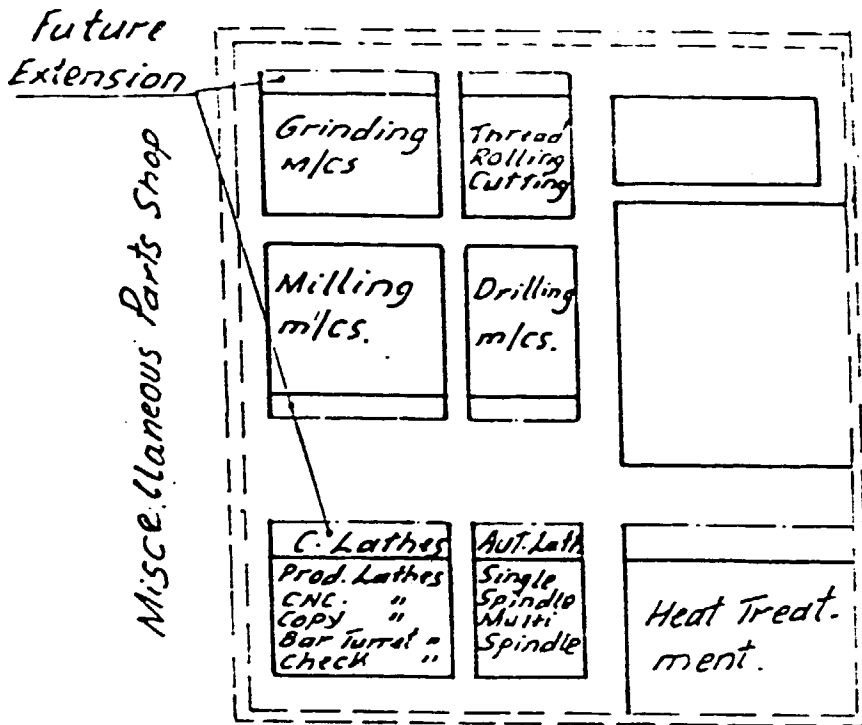 Future
Extension
Miscellaneous Parts Shop
Grinding
M/CS
Thread
Rolling
Cutting
Milling
m/cs.
Drilling
m/cs.
C. Lathes
Prod. Lathes
CNC. "
Copy "
Bar Turret "
Check "
Aut. Lath
Single
Spindle
Multi
Spindle
Heat Treat-
ment.